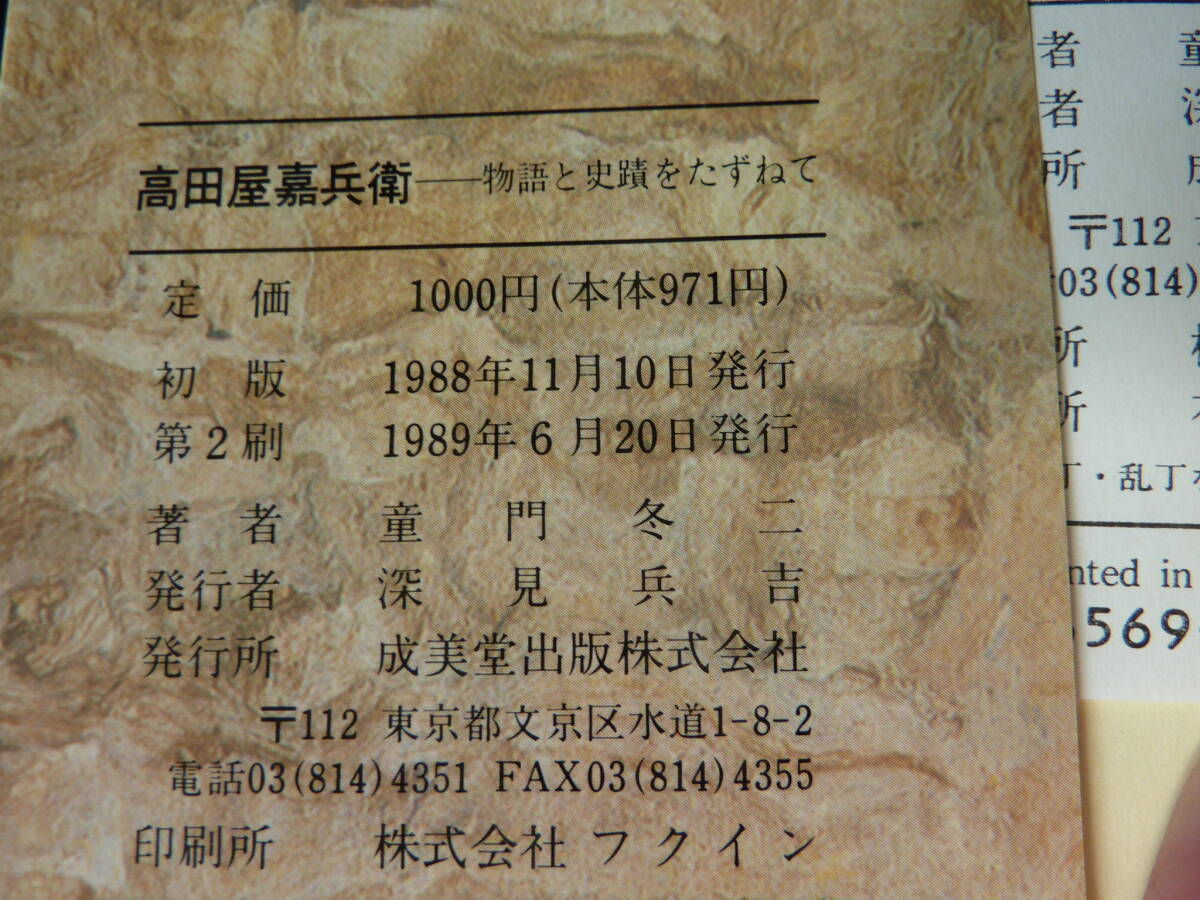 高田屋嘉兵衛――物語と史蹟をたずねて
定価 1000円(本体971円)
初版 1988年11月10日発行
第2刷 1989年6月20日発行
著者 童門冬二
発行者 深見兵吉
発行所 成美堂出版株式会社
〒112 東京都文京区水道1-8-2
電話03(814)4351 FAX03(814)4355
印刷所 株式会社フクイン
者 童
者 深
所
〒112
03(814)
所
所
丁・乱丁
nted in
569